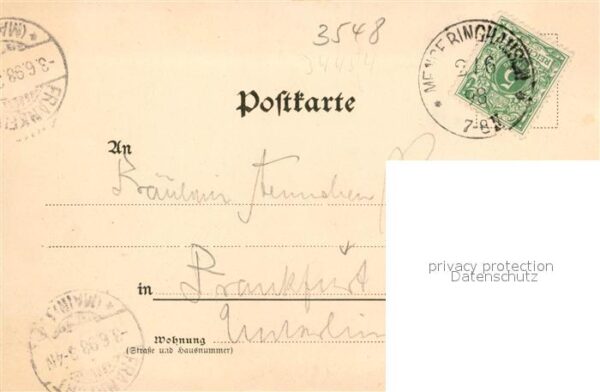 3548
34454
MENGERINGHAUSEN
2/6
98
7-8N
5
FRANKFURT
(MAIN)
-3.6.98
Postkarte
An
Fräulein Aennchen
in Frankfurt
Wohnung
(Straße und Hausnummer)
(MAIN)
-3.6.98
FRANKFURT
privacy protection
Datenschutz